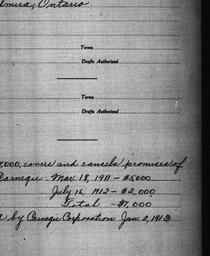 Elmira, Ontario
Terms
Drafts Authorized
Terms
Drafts Authorized
7,000, covers and cancels promises of
Carnegie. Mar. 18, 1911 - $5000
July 16, 1912 - $2,000
Total - $7,000
by Carnegie Corporation Jan. 2, 1913